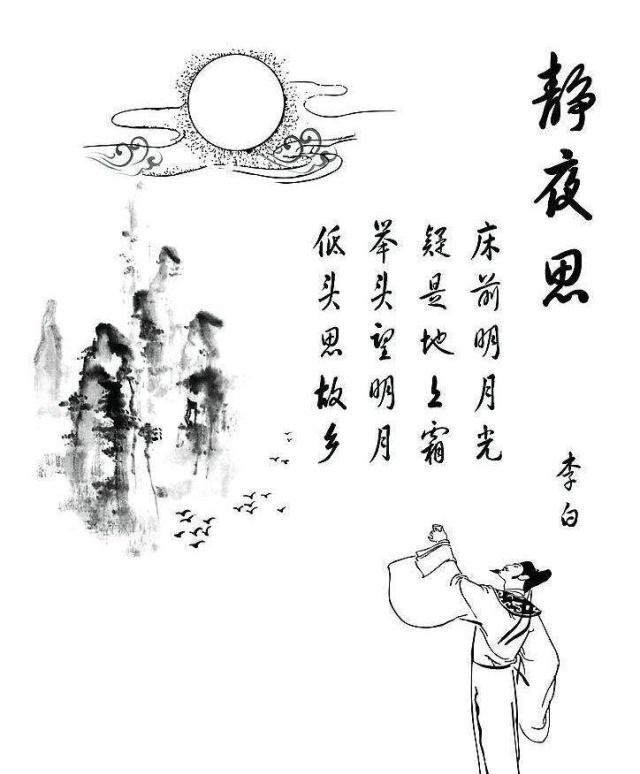 静夜思
李白
床前明月光
疑是地上霜
举头望明月
低头思故乡